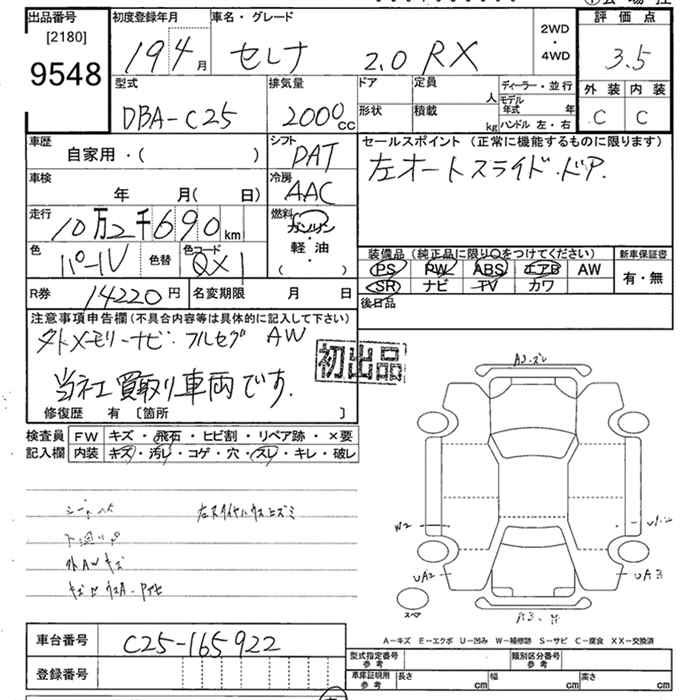 出品番号 初度登録年月 車名・グレード 評価点
[2180] 9548
19 4月 セレナ 2.0 RX 2WD・4WD 3.5
型式 排気量 ドア 定員 人 ディーラー・並行 外装 内装
DBA-C25 2000cc 形状 積載 kg モデル年式 年 ハンドル 左・右 C C
車歴 シフト セールスポイント (正常に機能するものに限ります)
自家用・( ) DAT 左オートスライドドア.
車検 冷房
年 月( 日) AAC
走行 燃料
10万2千690km ガソリン・軽・油 ( )
色 色替 色コード 装備品 (純正品に限り○をつけてください) 新車保証書
パール QX1 PS PW ABS エアB AW 有・無
SR ナビ TV カワ
R券 14220円 名変期限 月 日 後日品
注意事項申告欄 (不具合内容等は具体的に記入して下さい)
外トメモリーナビ フルセグ AW
当社買取り車両です.
初出品
修復歴 有 〔箇所 〕
検査員 FW キズ・飛石・ヒビ割・リペア跡・×要
記入欄 内装 キズ・汚レ・コゲ・穴・スレ・キレ・破レ
W2
UA2 UA3
スペア
A-キズ E-エクボ U-凹み W-補修跡 S-サビ C-腐食 XX-交換済
車台番号 C25-165922
型式指定番号 参考 類別区分番号 参考
登録番号 車庫証明用 参考 長さ cm 幅 cm 高さ cm